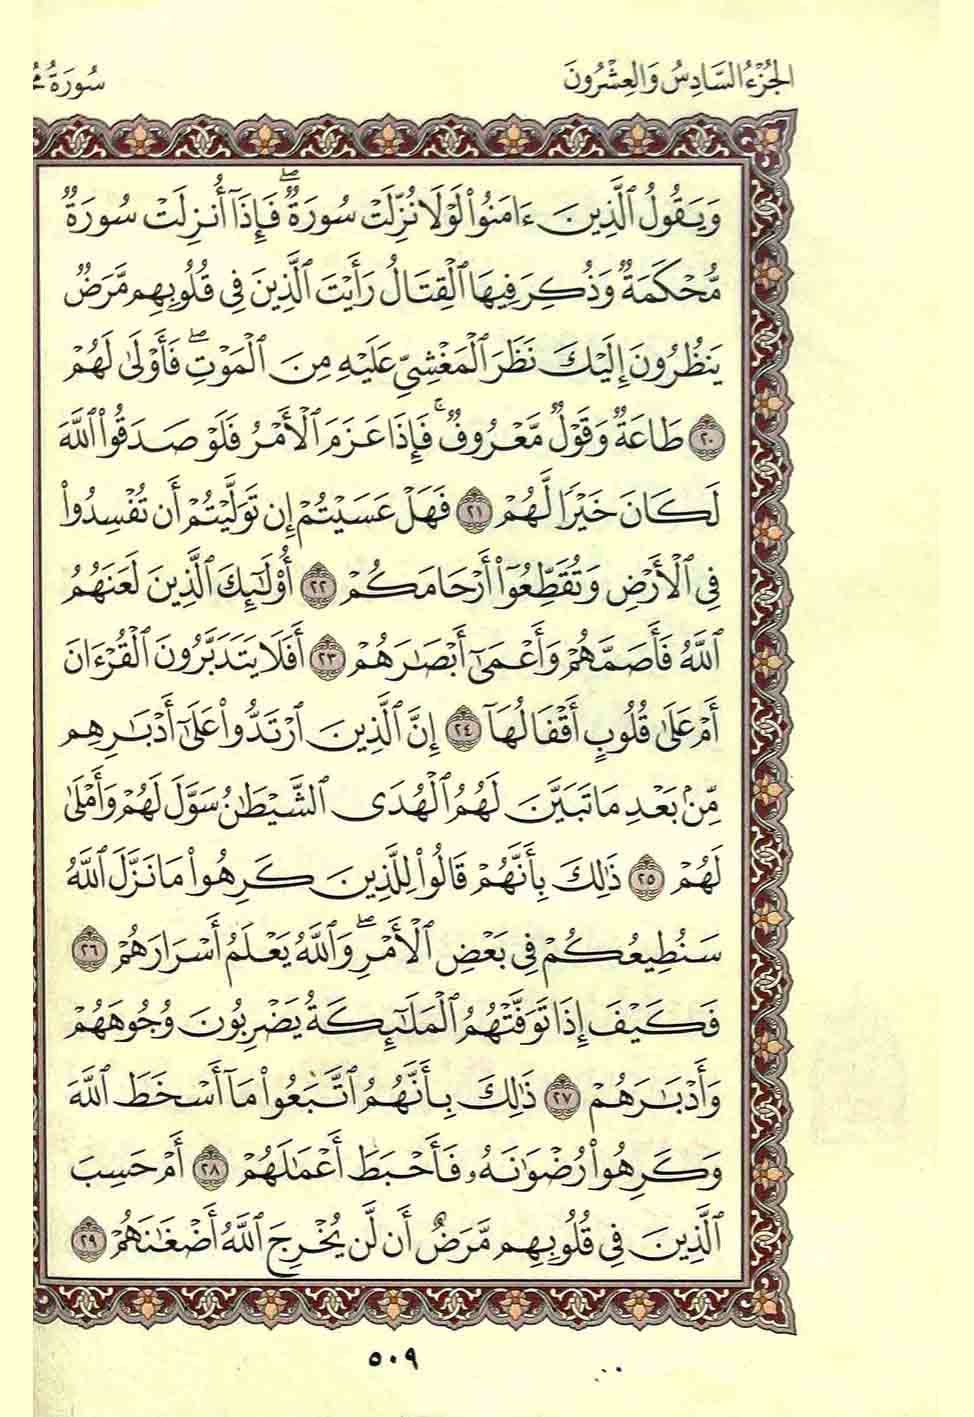 الجُزْءُ السَّادِسُ وَالعِشْرُونَ
سُورَةُ
وَيَقُولُ ٱلَّذِينَ ءَامَنُوا۟ لَوْلَا نُزِّلَتْ سُورَةٌ ۖ فَإِذَآ أُنزِلَتْ سُورَةٌ
مُّحْكَمَةٌ وَذُكِرَ فِيهَا ٱلْقِتَالُ رَأَيْتَ ٱلَّذِينَ فِى قُلُوبِهِم مَّرَضٌ
يَنظُرُونَ إِلَيْكَ نَظَرَ ٱلْمَغْشِىِّ عَلَيْهِ مِنَ ٱلْمَوْتِ ۖ فَأَوْلَىٰ لَهُمْ
٢٠ طَاعَةٌ وَقَوْلٌ مَّعْرُوفٌ ۚ فَإِذَا عَزَمَ ٱلْأَمْرُ فَلَوْ صَدَقُوا۟ ٱللَّهَ
لَكَانَ خَيْرًا لَّهُمْ ٢١ فَهَلْ عَسَيْتُمْ إِن تَوَلَّيْتُمْ أَن تُفْسِدُوا۟
فِى ٱلْأَرْضِ وَتُقَطِّعُوٓا۟ أَرْحَامَكُمْ ٢٢ أُو۟لَٰٓئِكَ ٱلَّذِينَ لَعَنَهُمُ
ٱللَّهُ فَأَصَمَّهُمْ وَأَعْمَىٰٓ أَبْصَٰرَهُمْ ٢٣ أَفَلَا يَتَدَبَّرُونَ ٱلْقُرْءَانَ
أَمْ عَلَىٰ قُلُوبٍ أَقْفَالُهَآ ٢٤ إِنَّ ٱلَّذِينَ ٱرْتَدُّوا۟ عَلَىٰٓ أَدْبَٰرِهِم
مِّنۢ بَعْدِ مَا تَبَيَّنَ لَهُمُ ٱلْهُدَى ٱلشَّيْطَٰنُ سَوَّلَ لَهُمْ وَأَمْلَىٰ
لَهُمْ ٢٥ ذَٰلِكَ بِأَنَّهُمْ قَالُوا۟ لِلَّذِينَ كَرِهُوا۟ مَا نَزَّلَ ٱللَّهُ
سَنُطِيعُكُمْ فِى بَعْضِ ٱلْأَمْرِ ۖ وَٱللَّهُ يَعْلَمُ أَسْرَارَهُمْ ٢٦
فَكَيْفَ إِذَا تَوَفَّتْهُمُ ٱلْمَلَٰٓئِكَةُ يَضْرِبُونَ وُجُوهَهُمْ
وَأَدْبَٰرَهُمْ ٢٧ ذَٰلِكَ بِأَنَّهُمُ ٱتَّبَعُوا۟ مَآ أَسْخَطَ ٱللَّهَ
وَكَرِهُوا۟ رِضْوَٰنَهُۥ فَأَحْبَطَ أَعْمَٰلَهُمْ ٢٨ أَمْ حَسِبَ
ٱلَّذِينَ فِى قُلُوبِهِم مَّرَضٌ أَن لَّن يُخْرِجَ ٱللَّهُ أَضْغَٰنَهُمْ ٢٩
٥٠٩